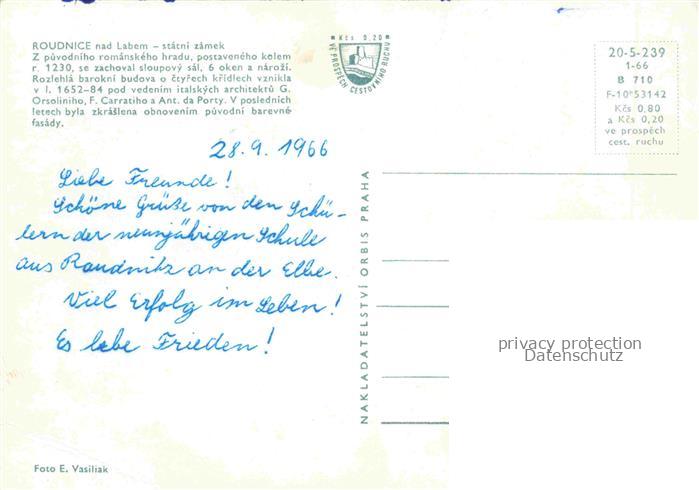 ROUDNICE nad Labem – státní zámek
Z původního románského hradu, postaveného kolem
r. 1230, se zachoval sloupový sál, 6 oken a nároží.
Rozlehlá barokní budova o čtyřech křídlech vznikla
v l. 1652–84 pod vedením italských architektů G.
Orsoliniho, F. Carratiho a Ant. da Porty. V posledních
letech byla zkrášlena obnovením původní barevné
fasády.
Kčs 0.20
VE PROSPĚCH CESTOVNÍHO RUCHU
20-5-239
1-66
B 710
F-10*53142
Kčs 0,80
a Kčs 0,20
ve prospěch
cest. ruchu
28.9. 1966
Liebe Freunde!
Schöne Grüße von den Schü-
lern der neunjährigen Schule
aus Raudnitz an der Elbe.
Viel Erfolg im Leben!
Es lebe Frieden!
NAKLADATELSTVÍ ORBIS PRAHA
privacy protection
Datenschutz
Foto E. Vasiliak